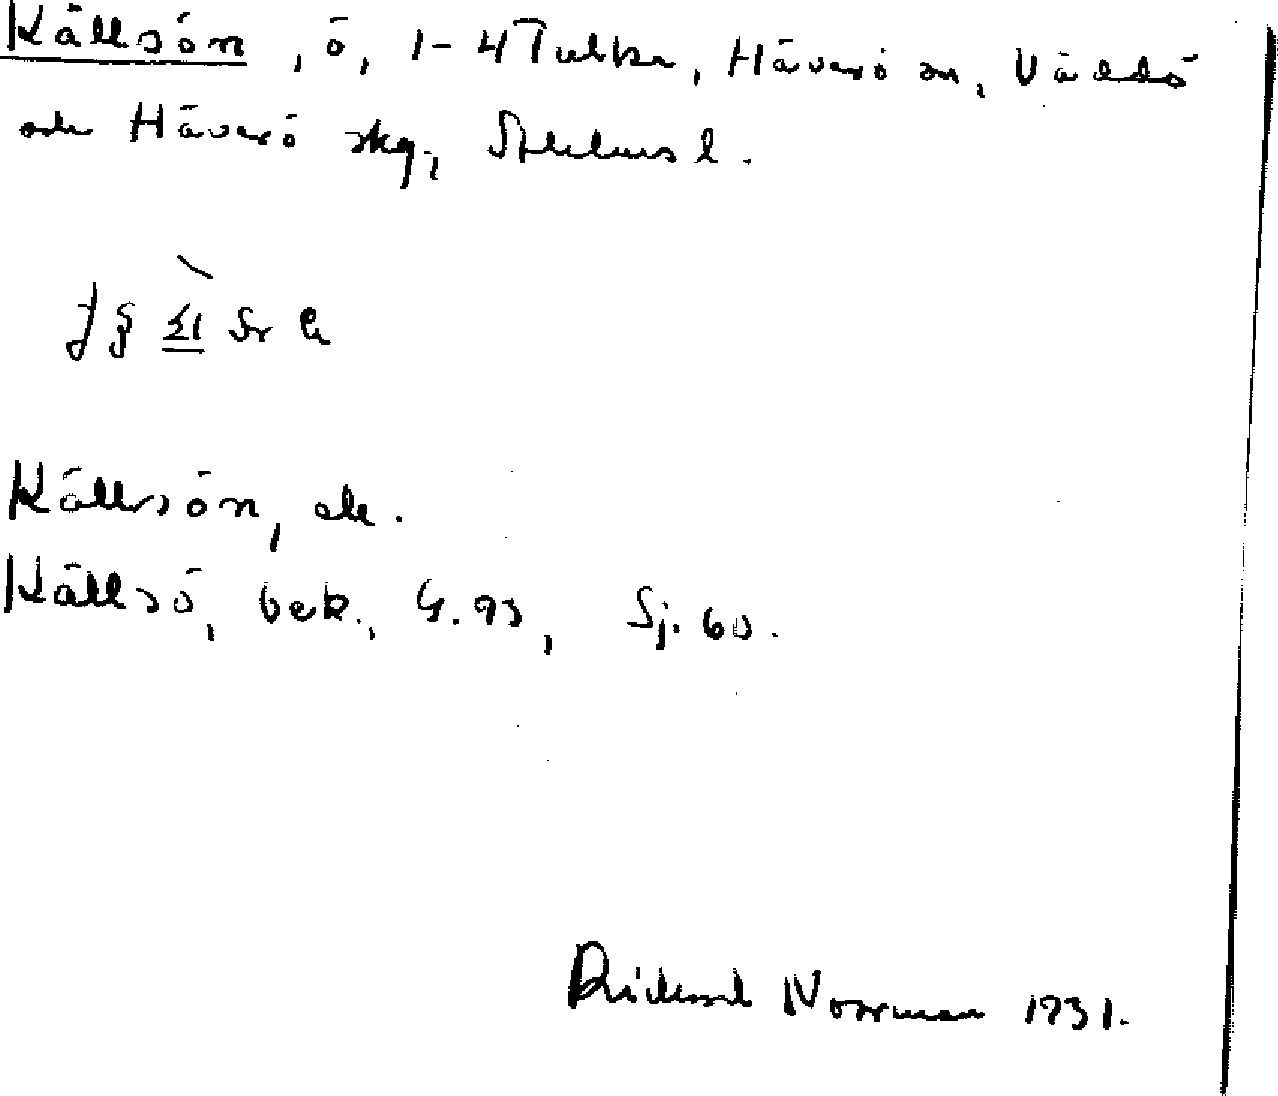 Källsön, ö, 1-4 Tulka, Häverö sn, Väddö
och Häverö skg, Stockholms l.
Källsön, ek.
Källsö, bek., G. 93, Sj. 60.
Rickard Norrman 1931.